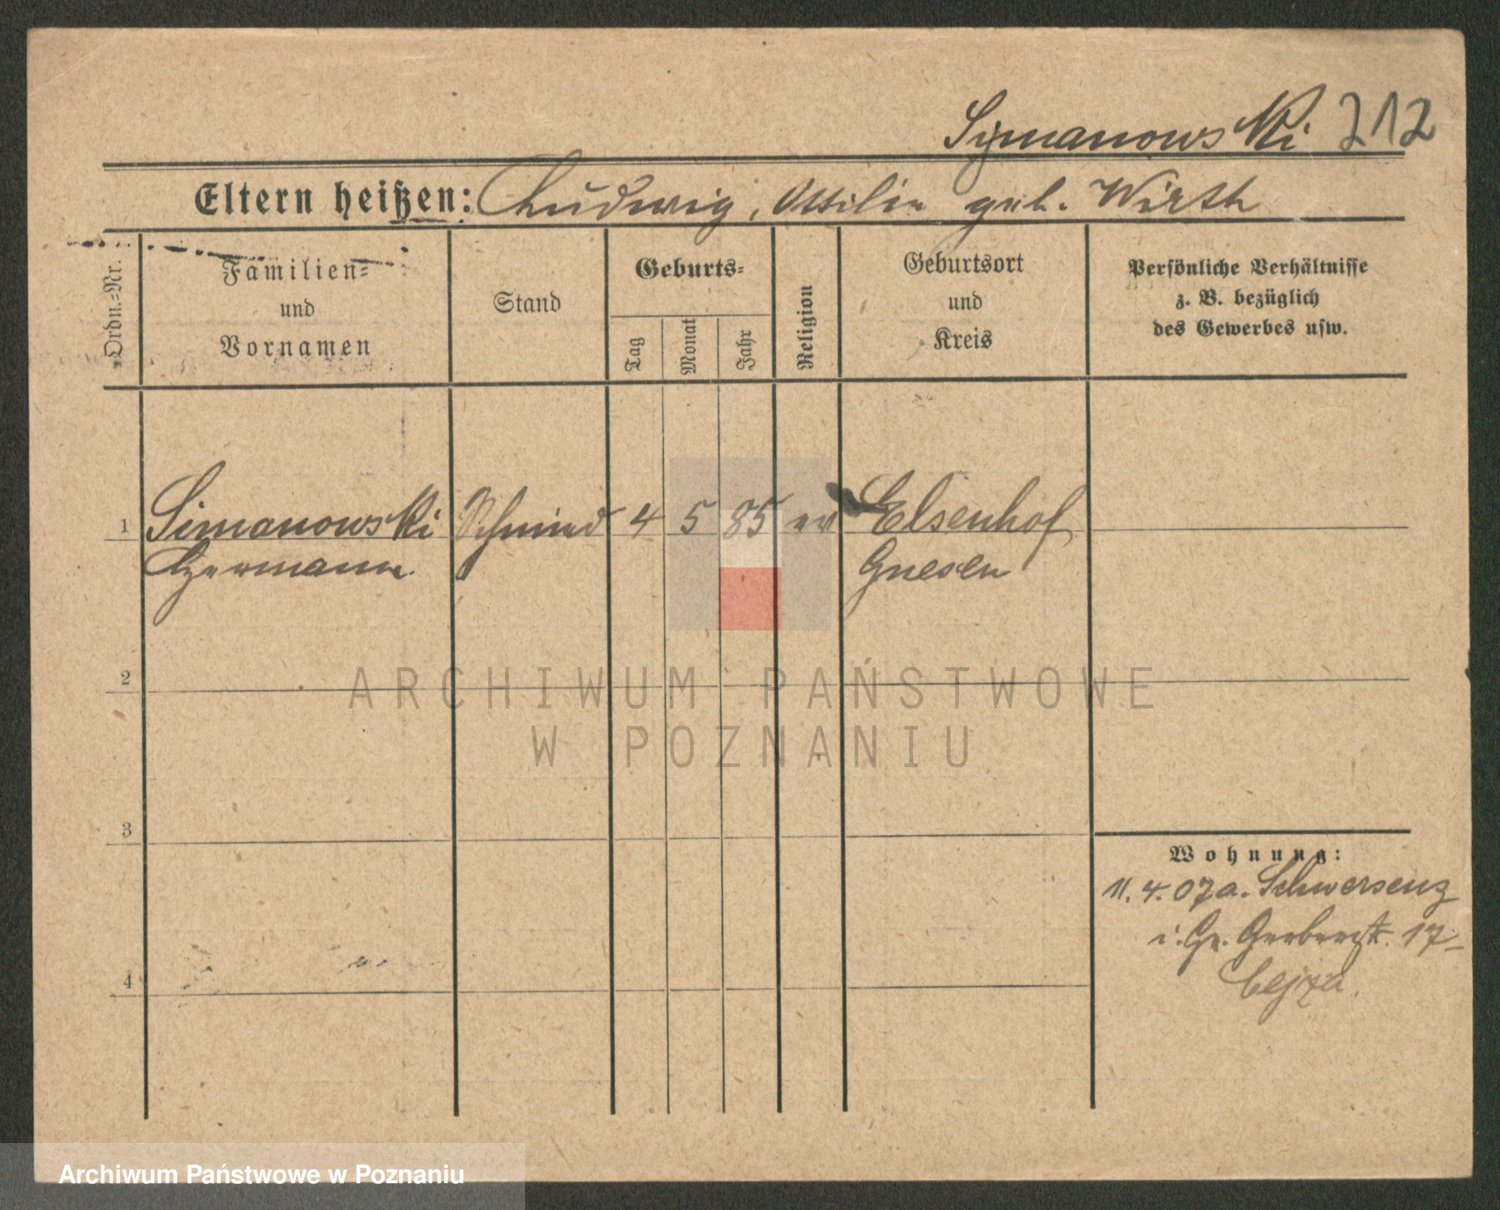 Symanowski 212
Eltern heißen: Ludwig, Ottilie geb. Wirth
Ordn.-Nr.
Familien-
und
Vornamen
Stand
Geburts-
Tag
Monat
Jahr
Religion
Geburtsort
und
Kreis
Persönliche Verhältnisse
z. B. bezüglich
des Gewerbes usw.
1 Simanowski Schmied 4 5 85 ev Elsenhof
Hermann Gnesen
2
ARCHIWUM PAŃSTWOWE
W POZNANIU
3
Wohnung:
11. 4. 07 a. Schwersenz
i. Gr. Gerberstr. 17
4
Archiwum Państwowe w Poznaniu